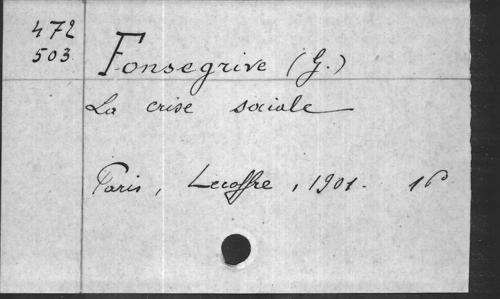 472
503
Fonsegrive (G.)
La crise sociale
Paris, Lecoffre, 1901. 16°